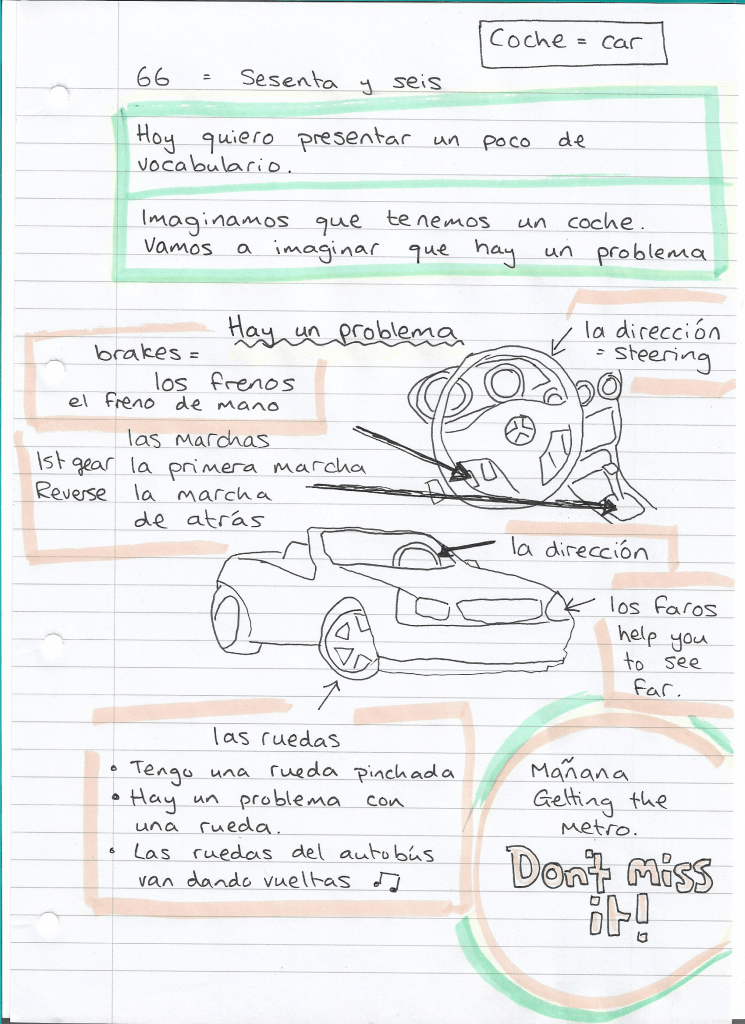 Coche = car
66 = Sesenta y seis
Hoy quiero presentar un poco de
vocabulario.
Imaginamos que tenemos un coche.
Vamos a imaginar que hay un problema
Hay un problema
la dirección
= steering
brakes =
los frenos
el freno de mano
las marchas
1st gear la primera marcha
Reverse la marcha
de atrás
la dirección
los faros
help you
to see
far.
las ruedas
• Tengo una rueda pinchada
• Hay un problema con
una rueda.
• Las ruedas del autobús
van dando vueltas ♫
Mañana
Getting the
metro.
Don't miss
it!